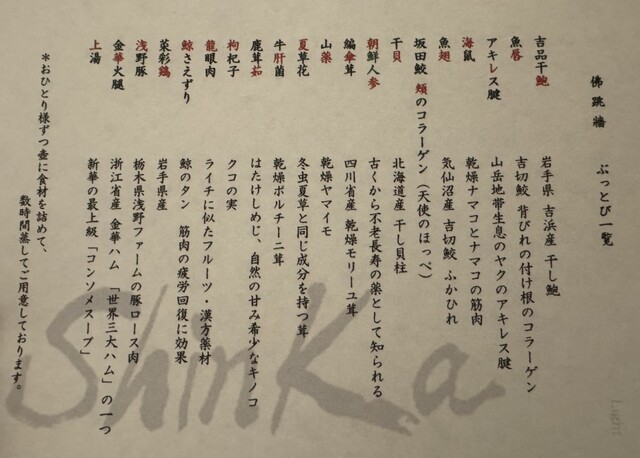 佛跳牆　ぶっとび一覧
吉品干鮑　岩手県 吉浜産 干し鮑
魚唇　吉切鮫 背びれの付け根のコラーゲン
アキレス腱　山岳地帯生息のヤクのアキレス腱
海鼠　乾燥ナマコとナマコの筋肉
魚翅　気仙沼産 吉切鮫 ふかひれ
坂田鮫 頬のコラーゲン（天使のほっぺ）
干貝　北海道産 干し貝柱
朝鮮人参　古くから不老長寿の薬として知られる
編傘茸　四川省産 乾燥モリーユ茸
山薬　乾燥ヤマイモ
夏草花　冬虫夏草と同じ成分を持つ茸
牛肝菌　乾燥ポルチーニ茸
鹿茸茹　はたけしめじ、自然の甘み希少なキノコ
枸杞子　クコの実
龍眼肉　ライチに似たフルーツ・漢方薬材
鯨さえずり　鯨のタン　筋肉の疲労回復に効果
菜彩鶏　岩手県産
浅野豚　栃木県浅野ファームの豚ロース肉
金華火腿　浙江省産 金華ハム 「世界三大ハム」の一つ
上湯　新華の最上級「コンソメスープ」
＊おひとり様ずつ壺に食材を詰めて、
数時間蒸してご用意しております。
ShinKa